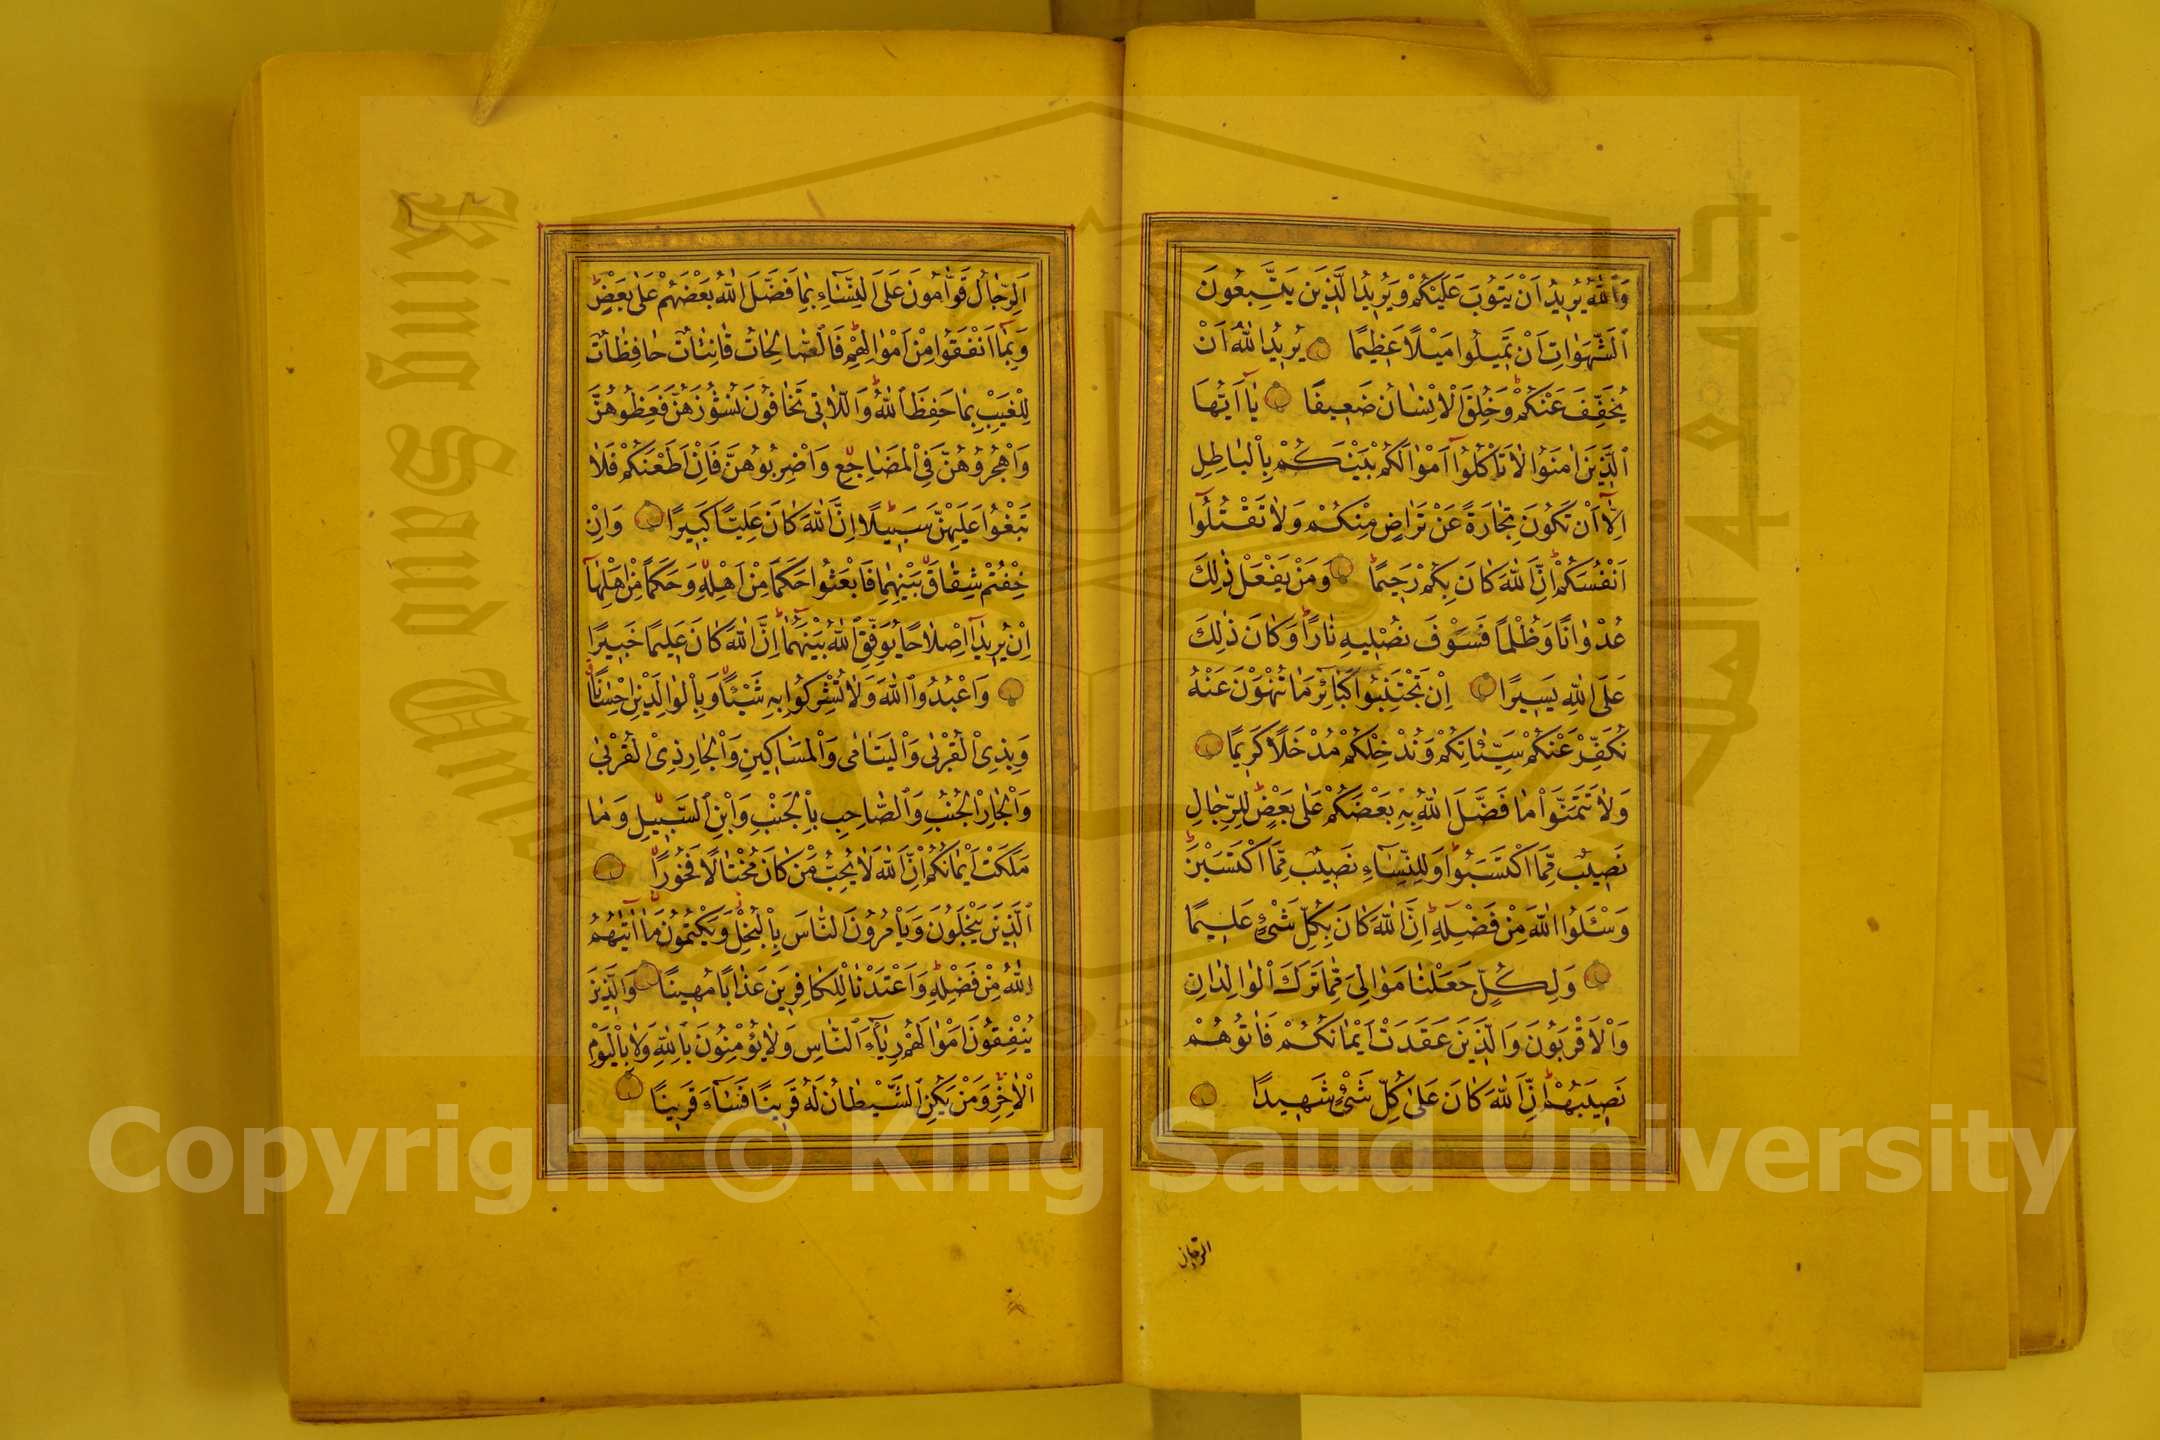 وَاللّٰهُ يُرِيدُ اَنْ يَتُوبَ عَلَيْكُمْ وَيُرِيدُ الَّذِينَ يَتَّبِعُونَ
الشَّهَوَاتِ اَنْ تَمِيلُوا مَيْلًا عَظِيمًا يُرِيدُ اللّٰهُ اَنْ
يُخَفِّفَ عَنْكُمْ وَخُلِقَ الْاِنْسَانُ ضَعِيفًا يَا اَيُّهَا
الَّذِينَ اٰمَنُوا لَا تَأْكُلُوا اَمْوَالَكُمْ بَيْنَكُمْ بِالْبَاطِلِ
اِلَّا اَنْ تَكُونَ تِجَارَةً عَنْ تَرَاضٍ مِنْكُمْ وَلَا تَقْتُلُوا
اَنْفُسَكُمْ اِنَّ اللّٰهَ كَانَ بِكُمْ رَحِيمًا وَمَنْ يَفْعَلْ ذٰلِكَ
عُدْوَانًا وَظُلْمًا فَسَوْفَ نُصْلِيهِ نَارًا وَكَانَ ذٰلِكَ
عَلَى اللّٰهِ يَسِيرًا اِنْ تَجْتَنِبُوا كَبَائِرَ مَا تُنْهَوْنَ عَنْهُ
نُكَفِّرْ عَنْكُمْ سَيِّئَاتِكُمْ وَنُدْخِلْكُمْ مُدْخَلًا كَرِيمًا
وَلَا تَتَمَنَّوْا مَا فَضَّلَ اللّٰهُ بِهِ بَعْضَكُمْ عَلٰى بَعْضٍ لِلرِّجَالِ
نَصِيبٌ مِمَّا اكْتَسَبُوا وَلِلنِّسَاءِ نَصِيبٌ مِمَّا اكْتَسَبْنَ
وَسْـَٔلُوا اللّٰهَ مِنْ فَضْلِهِ اِنَّ اللّٰهَ كَانَ بِكُلِّ شَیْءٍ عَلِيمًا
وَلِكُلٍّ جَعَلْنَا مَوَالِیَ مِمَّا تَرَكَ الْوَالِدَانِ
وَالْاَقْرَبُونَ وَالَّذِينَ عَقَدَتْ اَيْمَانُكُمْ فَاٰتُوهُمْ
نَصِيبَهُمْ اِنَّ اللّٰهَ كَانَ عَلٰى كُلِّ شَیْءٍ شَهِيدًا
الرجال
اَلرِّجَالُ قَوَّامُونَ عَلَى النِّسَاءِ بِمَا فَضَّلَ اللّٰهُ بَعْضَهُمْ عَلٰى بَعْضٍ
وَبِمَا اَنْفَقُوا مِنْ اَمْوَالِهِمْ فَالصَّالِحَاتُ قَانِتَاتٌ حَافِظَاتٌ
لِلْغَيْبِ بِمَا حَفِظَ اللّٰهُ وَاللَّاتِى تَخَافُونَ نُشُوزَهُنَّ فَعِظُوهُنَّ
وَاهْجُرُوهُنَّ فِى الْمَضَاجِعِ وَاضْرِبُوهُنَّ فَاِنْ اَطَعْنَكُمْ فَلَا
تَبْغُوا عَلَيْهِنَّ سَبِيلًا اِنَّ اللّٰهَ كَانَ عَلِيًّا كَبِيرًا وَاِنْ
خِفْتُمْ شِقَاقَ بَيْنِهِمَا فَابْعَثُوا حَكَمًا مِنْ اَهْلِهِ وَحَكَمًا مِنْ اَهْلِهَا
اِنْ يُرِيدَا اِصْلَاحًا يُوَفِّقِ اللّٰهُ بَيْنَهُمَا اِنَّ اللّٰهَ كَانَ عَلِيمًا خَبِيرًا
وَاعْبُدُوا اللّٰهَ وَلَا تُشْرِكُوا بِهِ شَيْئًا وَبِالْوَالِدَيْنِ اِحْسَانًا
وَبِذِى الْقُرْبٰى وَالْيَتَامٰى وَالْمَسَاكِينِ وَالْجَارِ ذِى الْقُرْبٰى
وَالْجَارِ الْجُنُبِ وَالصَّاحِبِ بِالْجَنْبِ وَابْنِ السَّبِيلِ وَمَا
مَلَكَتْ اَيْمَانُكُمْ اِنَّ اللّٰهَ لَا يُحِبُّ مَنْ كَانَ مُخْتَالًا فَخُورًا
الَّذِينَ يَبْخَلُونَ وَيَاْمُرُونَ النَّاسَ بِالْبُخْلِ وَيَكْتُمُونَ مَا اٰتٰيهُمُ
اللّٰهُ مِنْ فَضْلِهِ وَاَعْتَدْنَا لِلْكَافِرِينَ عَذَابًا مُهِينًا وَالَّذِينَ
يُنْفِقُونَ اَمْوَالَهُمْ رِئَاءَ النَّاسِ وَلَا يُؤْمِنُونَ بِاللّٰهِ وَلَا بِالْيَوْمِ
الْاٰخِرِ وَمَنْ يَكُنِ الشَّيْطَانُ لَهُ قَرِينًا فَسَاءَ قَرِينًا
King Saud University
جامعة الملك
1957
Copyright © King Saud University